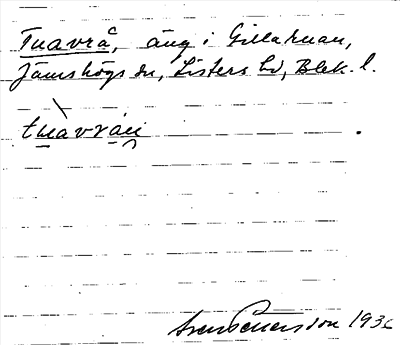 Tuavrå, äng i Gillaruan,
Jämshögs sn, Listers hd, Blek. l.
tuàvráu̯
Sven Pettersson 193